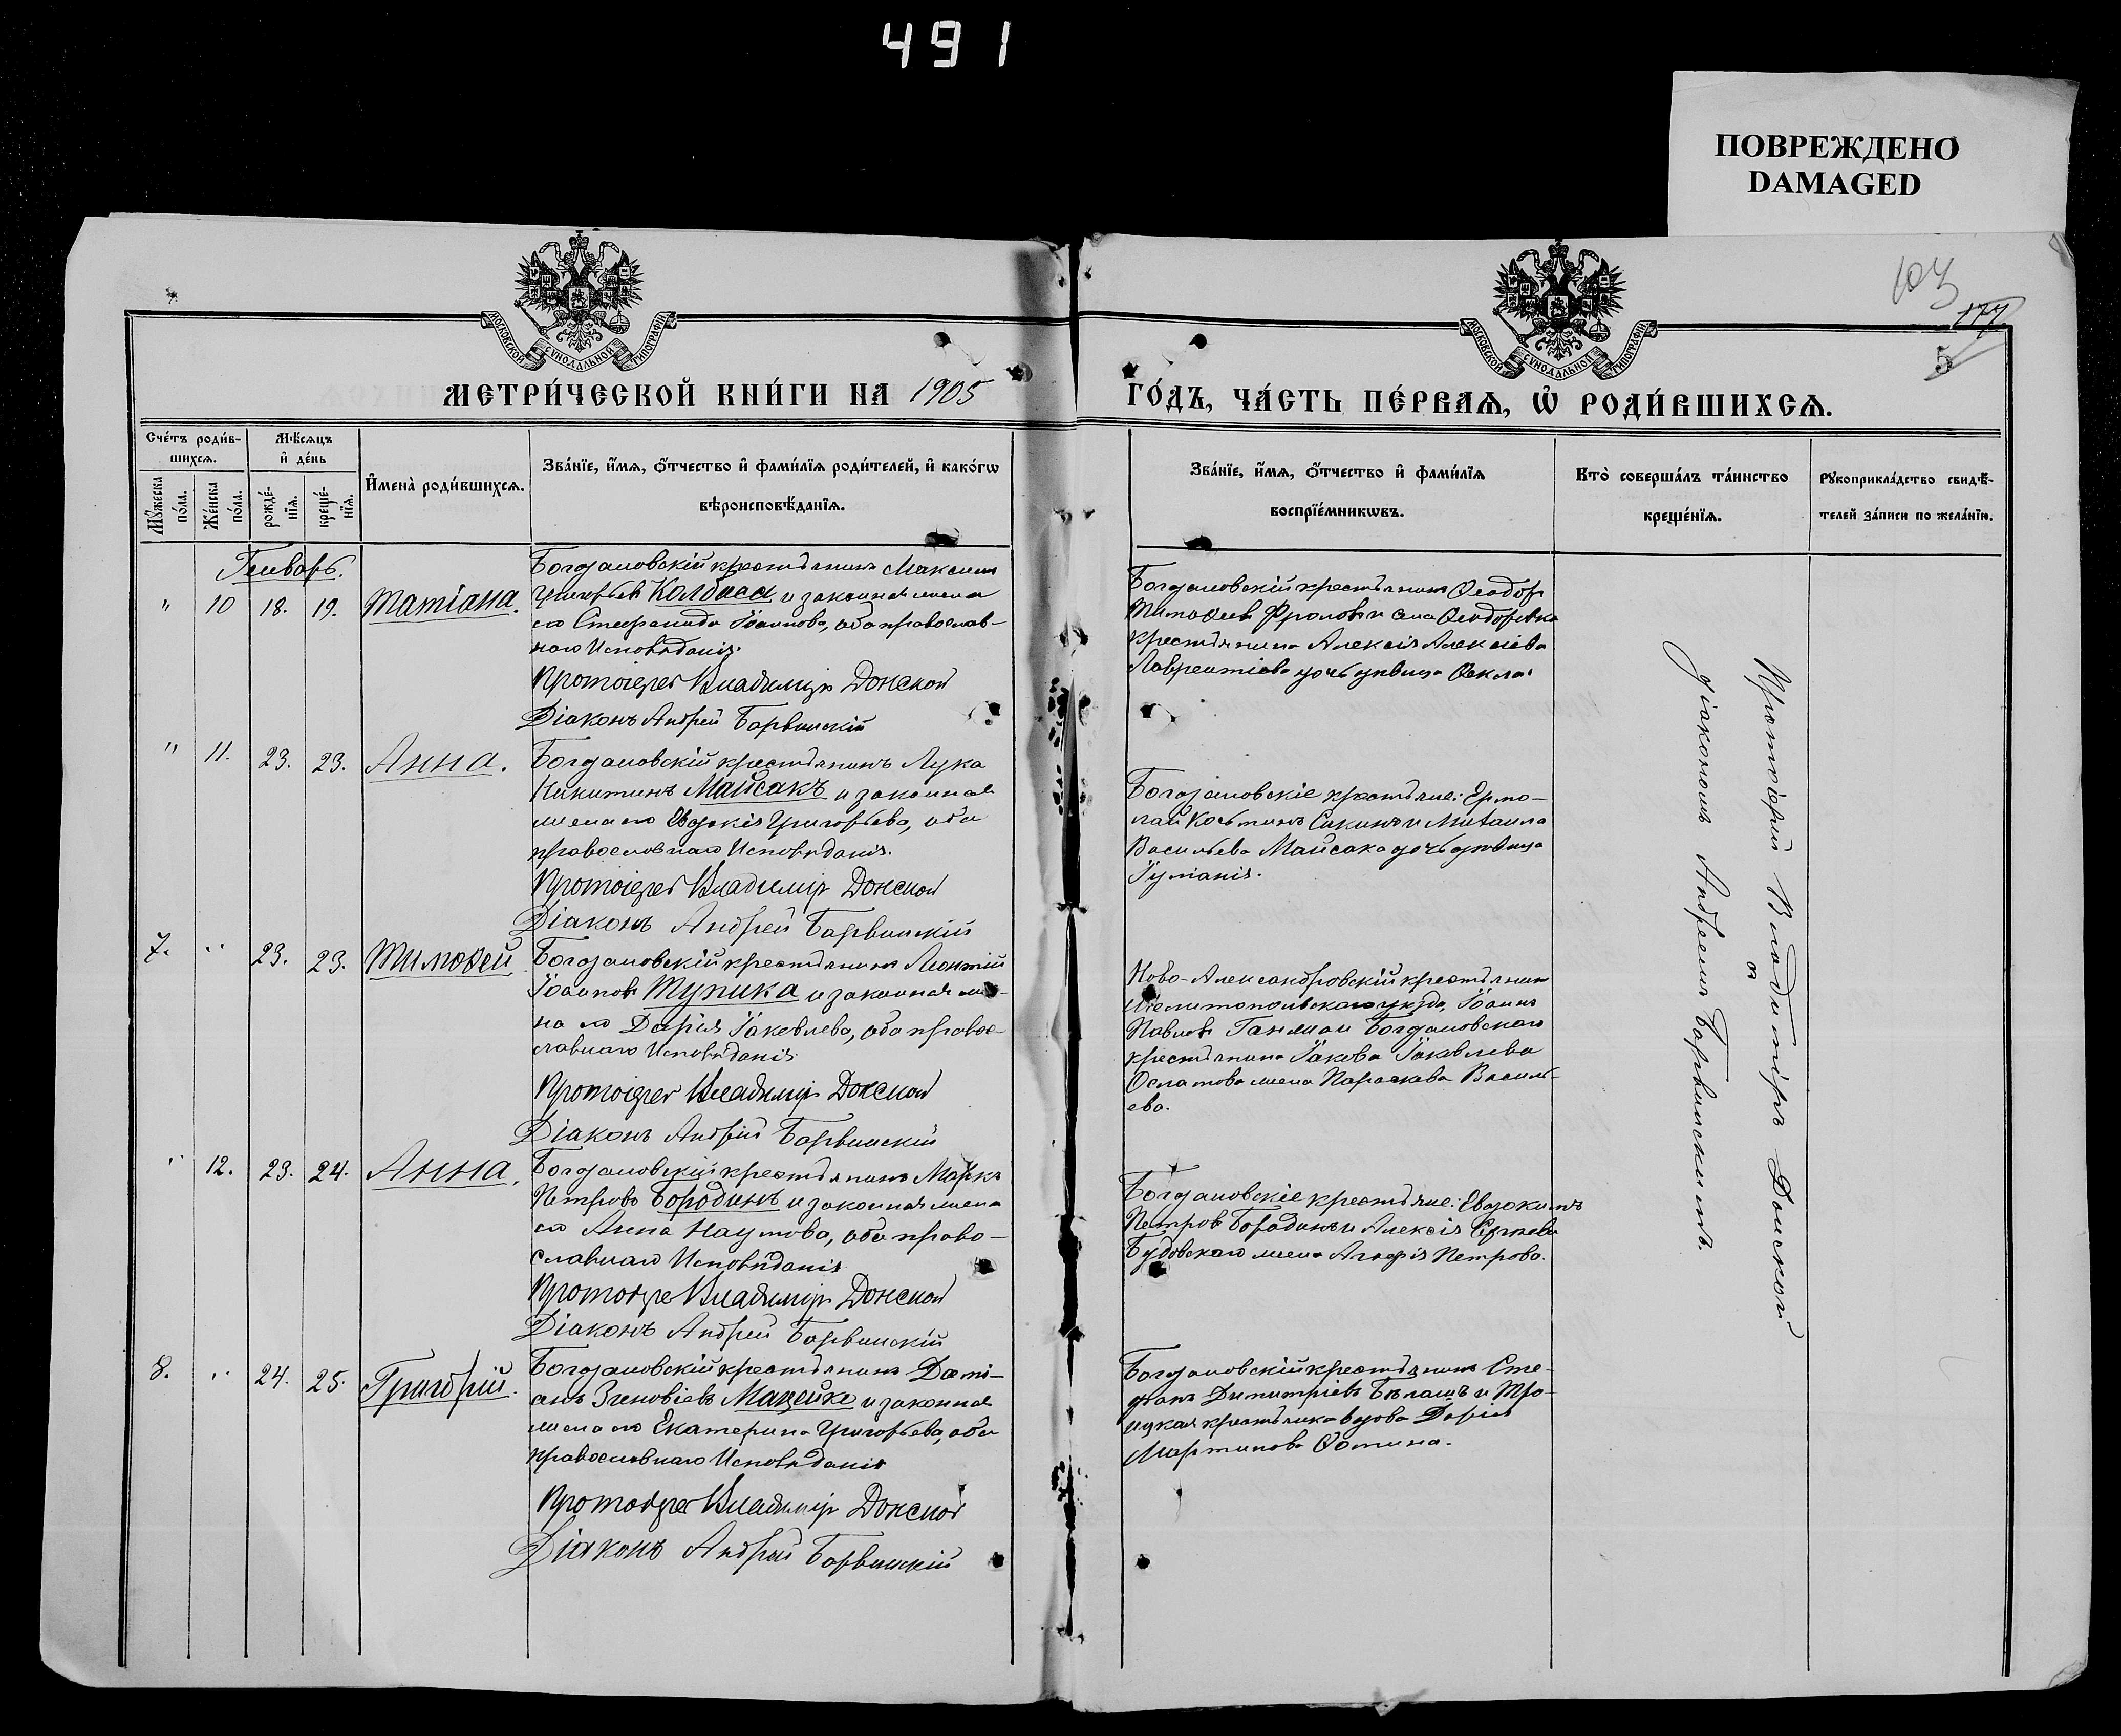 491
ПОВРЕЖДЕНО
DAMAGED
МОСКОВСКОЙ СѴНОДАЛЬНОЙ ТИПОГРАФІИ
МОСКОВСКОЙ СѴНОДАЛЬНОЙ ТИПОГРАФІИ
103
177
5
МЕТРИ́ЧЕСКОЙ КНИ́ГИ НА 1905
ГО́ДЪ, ЧА́СТЬ ПЕ́РВАѦ, Ѡ҆ РОДИ́ВШИХСѦ.
Сче́тъ роди́в-
шихсѧ.
Мѣ́сѧцъ
и҆ де́нь
Мꙋ́жеска
по́ла.
Же́нска
по́ла.
рожде́-
нїѧ.
креще́-
нїѧ.
И҆мена̀ роди́вшихсѧ.
Зва́нїе, и҆́мѧ, ѻ҆́тчество и҆ фами́лїѧ роди́телей, и҆ како́гѡ
вѣроисповѣ́данїѧ.
Зва́нїе, и҆́мѧ, ѻ҆́тчество и҆ фами́лїѧ
воспрїе́мникѡвъ.
Кто̀ соверша́лъ та́инство
креще́нїѧ.
Рꙋкоприкла́дство свидѣ́-
телей за́писи по жела́нїю.
Генварь.
" 10 18. 19. Татіана.
Богдановскій крестьянинъ Максимъ
Григорьевъ Колбаса и законная жена
его Стефанида Іоаннова, оба православ-
наго Исповѣданія.
Протоіерей Владиміръ Донской
Діаконъ Андрей Барвинскій
Богдановскій крестьянинъ Ѳеодоръ
Тимоѳеевъ Фроловъ и села Ѳеодоровка
крестьянина Алексія Алексіева
Лаврентіева дочь дѣвица Ѳекла.
" 11. 23. 23. Анна.
Богдановскій крестьянинъ Лука
Никитинъ Майсакъ и законная
жена его Евдокія Григорьева, оба
православнаго Исповѣданія.
Протоіерей Владиміръ Донской
Діаконъ Андрей Барвинскій
Богдановскіе крестьяне: Ермо-
лай Костинъ Сикинъ и Михаила
Васильева Майсака дочь дѣвица
Іуліанія.
7. " 23. 23. Тимоѳей
Богдановскій крестьянинъ Леонтій
Іоанновъ Тупика и законная же-
на его Дарія Іаковлева, оба право-
славнаго Исповѣданія.
Протоіерей Владиміръ Донской
Діаконъ Андрей Барвинскій
Ново-Александровскій крестьянинъ
Мелитопольскаго уѣзда, Іоаннъ
Павловъ Ганжа и Богдановскаго
крестьянина Іакова Іаковлева
жена Параскева Василь-
ева.
" 12. 23. 24. Анна.
Богдановскій крестьянинъ Маркъ
Петровъ Бородинъ и законная жена
его Анна Наумова, оба право-
славнаго Исповѣданія
Протоіерей Владиміръ Донской
Діаконъ Андрей Барвинскій
Богдановскіе крестьяне: Евдокимъ
Петровъ Бородинъ и Алексія Сергѣева
Будовскаго жена Агафія Петрова.
8. " 24. 25. Григорій.
Богдановскій крестьянинъ Дамі-
анъ Зиновіевъ Мацейко и законная
жена его Екатерина Григорьева, оба
православнаго Исповѣданія
Протоіерей Владиміръ Донской
Діаконъ Андрей Барвинскій
Богдановскій крестьянинъ Сте-
фанъ Димитріевъ Бѣлашъ и Тро-
ицкая крестьянка вдова Дарія
Мартинова Ѳомина.
Протоіерей Владиміръ Донской
съ
діакономъ Андреемъ Барвинскимъ.